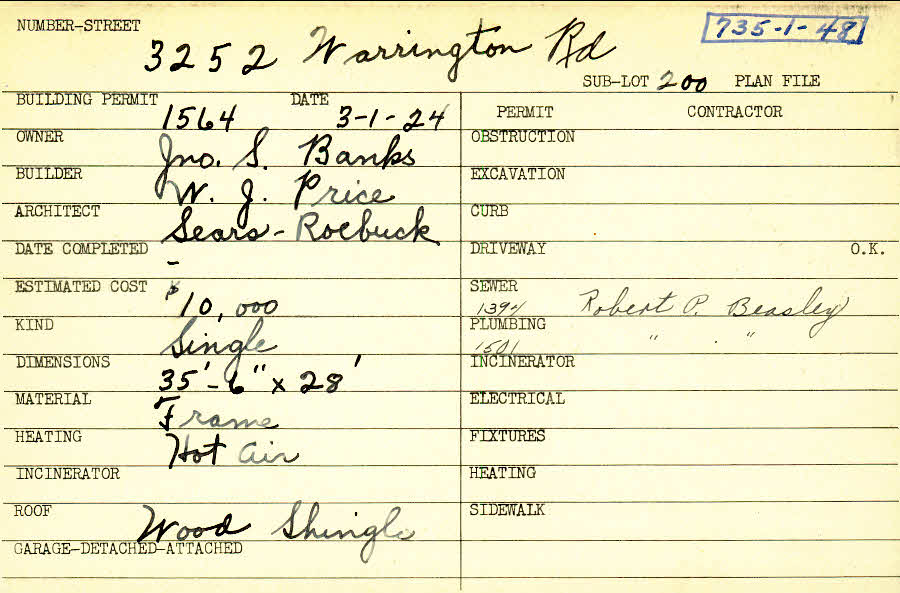 NUMBER-STREET
3252 Warrington Rd
735-1-48
SUB-LOT 200 PLAN FILE
BUILDING PERMIT 1564 DATE 3-1-24
OWNER Jno. S. Banks
BUILDER W. J. Price
ARCHITECT Sears-Roebuck
DATE COMPLETED -
ESTIMATED COST $10,000
KIND Single
DIMENSIONS 35'-6" x 28'
MATERIAL Frame
HEATING Hot air
INCINERATOR
ROOF Wood Shingle
GARAGE-DETACHED-ATTACHED
PERMIT CONTRACTOR
OBSTRUCTION
EXCAVATION
CURB
DRIVEWAY O.K.
SEWER
1394 Robert P. Beasley
PLUMBING
1501 " . "
INCINERATOR
ELECTRICAL
FIXTURES
HEATING
SIDEWALK